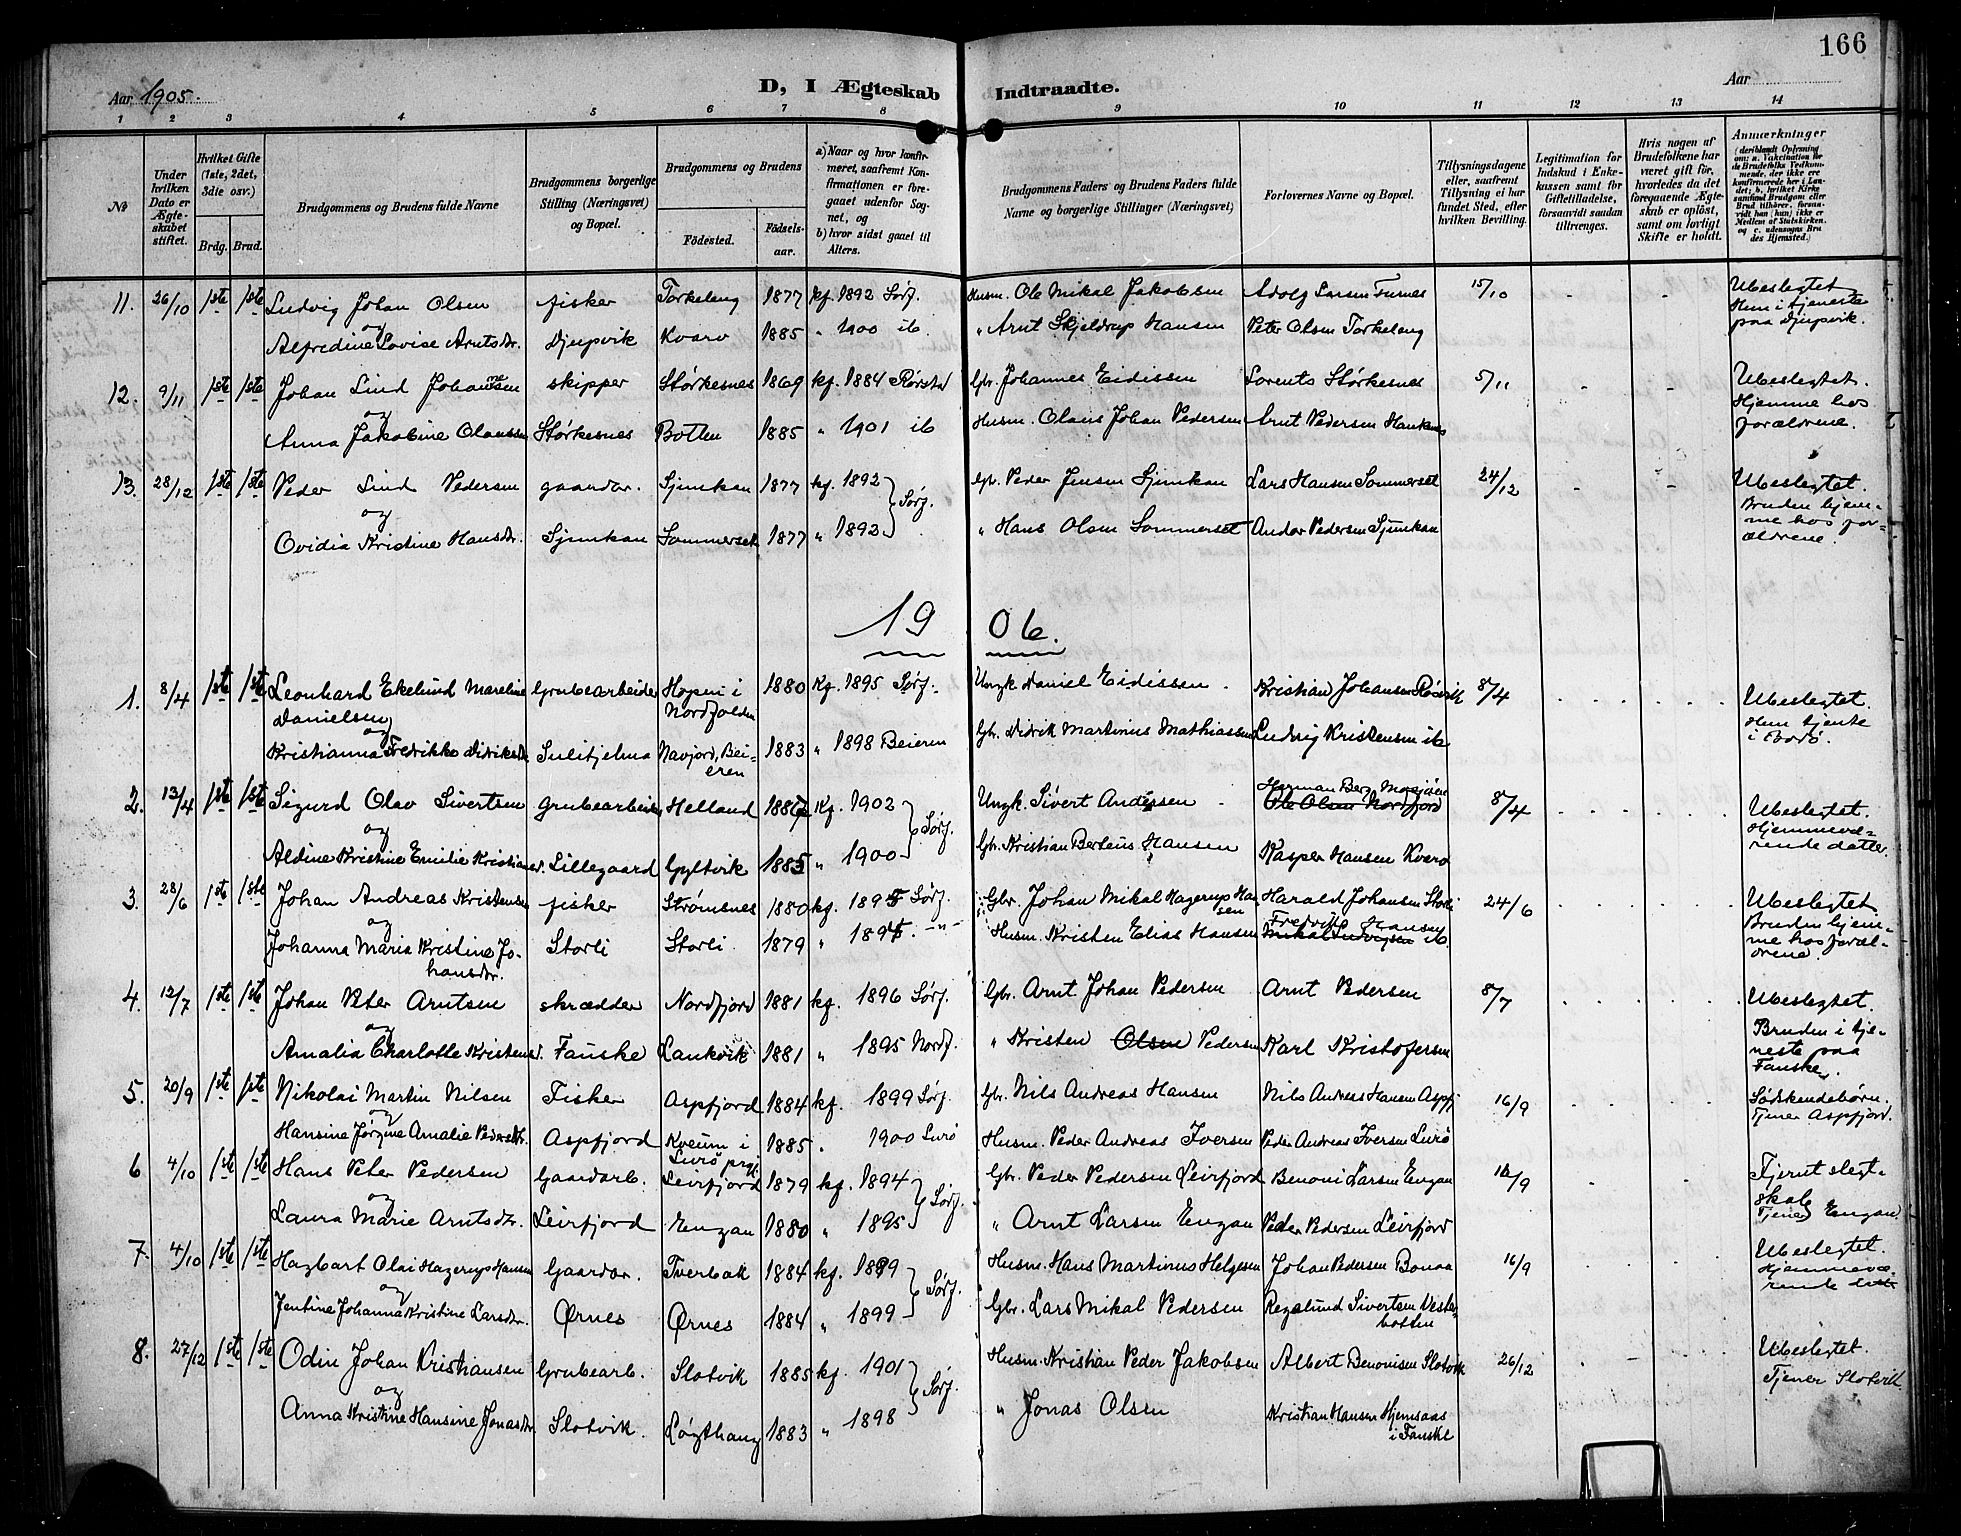 166
Aar 1905.
D, I Ægteskab Indtraadte.
Aar
1 2 3 4 5 6 7 8 9 10 11 12 13 14
No
Under hvilken Dato er Ægteskabet stiftet.
Hvilket Gifte (1ste, 2det, 3die osv.)
Brdg. Brud.
Brudgommens og Brudens fulde Navne
Brudgommens borgerlige Stilling (Næringsvei) og Bopæl.
Brudgommens og Brudens
Födested. Födselsaar.
a) Naar og hvor konfirmeret, saafremt Konfirmationen er foregaaet udenfor Sognet, og
b) hvor sidst gaaet til Alters.
Brudgommens Faders og Brudens Faders fulde Navne og borgerlige Stillinger (Næringsvei)
Forlovernes Navne og Bopæl.
Tillysningsdagene eller, saafremt Tillysning ei har fundet Sted, efter hvilken Bevilling.
Legitimation for Indskud i Enkekassen samt for Giftetilladelse, forsaavidt saadan tiltrænges.
Hvis nogen af Brudefolkene har været gift før, hvorledes da det foregaaende Ægteskab er oplöst, samt om lovligt Skifte er holdt.
Anmærkninger
(deriblandt Oplysning om: a. Vakcination for de Brudefolks Vedkommende, der ikke ere konfirmerede her i Landet; b. hvilket Kirkesamfund Brudgom eller Brud tilhörer, forsaavidt han (hun) ikke er Medlem af Statskirken, og c. udensogns Brudes Hjemsted.)
11. 26/10 1ste 1ste Ludvig Johan Olsen fisker Torkeleng 1877 kf. 1892 Sørf. Husm. Ole Mikal Jakobsen Adolf Larsen Furnes 15/10 - - Ubeslegtet.
og Hun i tjeneste
Alfredine Lovise Arntsdr. Djupvik Kvarv 1885 " 1900 ib. " Arnt Skjeldrup Hansen Peter Olsen Torkeleng paa Djupvik.
12. 9/11 1ste 1ste Johan Lind Johannesen skipper Størkesnes 1869 kf. 1884 Rørstad Gbr. Johannes Eidissen Lorents Størkesnes 5/11 - - Ubeslegtet.
og Hjemme hos
Anna Jakobine Olaussen Størkesnes Botten 1885 " 1901 ib Husm. Olaus Johan Pedersen Arnt Pedersen Haukenes forældrene.
13. 28/12 1ste 1ste Peder Lind Pedersen gaardbr. Sjunkan 1877 kf. 1892 Sørf. Gbr. Peder Jensen Sjunkan Lars Hansen Sommerset 24/12 - - Ubeslegtet.
og Bruden hjemme hos forældrene.
Ovidia Kristine Hansdr. Sjunkan Sommerset 1877 " 1892 " Hans Olsen Sommerset Andor Pedersen Sjunkan
1906.
1. 8/4 1ste 1ste Leonhard Ekelund Mareline Grubearbeider Hopen i 1880 Kf. 1895 Sørf. Ungk. Daniel Eidissen Kristian Johansen 8/4 Ubeslegtet.
Danielsen Nordfolden Hun tjente
og i Bodø.
Kristianna Fredrikke Didriksdr. Sulitjelma Navjord, Beieren 1883 " 1898 Beieren Gbr. Didrik Martinus Mathiassen Ludvig Kristensen ib
2. 13/4 1ste 1ste Sigurd Olav Sivertsen grubearbeider Helland 1887 Kf. 1902 Sørf. Ungk. Sivert Anderssen Herman Berg Mosjøen 8/4 Ubeslegtet.
Ole Olsen Nordfjord
og Hjemmeværende datter.
Aldine Kristine Emilie Kristiansd. Lillegaard Gyltvik 1885 " 1900 Gbr. Kristian Berteus Hansen Kasper Hansen Kvarv
3. 28/6 1ste 1ste Johan Andreas Kristensen fisker Strømsnes 1880 kf. 1895 Sørf. Gbr. Johan Mikal Hagerup Hansen Harald Johansen Storli 24/6 Ubeslegtet.
og Fredrik Hansen Bruden hjemme hos forældrene.
Johanna Maria Kristine Johansdr. Storli Storli 1879 " 1894. -"- Husm. Kristen Elias Hansen Mikal Ludvigsen ib.
4. 12/7 1ste 1ste Johan Peter Arntsen skrædder Nordfjord 1881 kf. 1896 Sørf. Gbr. Arnt Johan Pedersen Arnt Pedersen 8/7 Ubeslegtet.
og Bruden i tjeneste paa
Amalia Charlotte Kristensd. Fauske Lankvik 1881 " 1895 Nordf. " Kristen Olsen Pedersen Karl Kristofersen Fauske.
5. 20/9 1ste 1ste Nikolai Martin Nilsen Fisker Aspfjord 1884 kf. 1899 Sørf. Gbr. Nils Andreas Hansen Nils Andreas Hansen Aspfj 16/9 Sødskendebørn.
og Tjener Aspfjord.
Hansine Jørgine Amalie Pedersdr. Aspfjord Kveum i 1885 " 1900 Lurø Husm. Peder Andreas Iversen Peder Andreas Iversen Lurø
Lurø prgj.
6 4/10 1ste 1ste Hans Peter Pedersen Gaardarb. Leirfjord 1879 kf. 1894 Sørf. Gbr. Peder Pedersen Leirfjord Benoni Larsen Engan 16/9 Fjernt slegtskab
og Tjener Engan.
Laura Marie Arntsdr. Leirfjord Engan 1880 " 1895 " Arnt Larsen Engan Peder Pedersen Leirfjord
7. 4/10 1ste 1ste Hagbart Olai Hagerup Hansen Gaardbr. Tverbak 1884 kf. 1899 Sørf. Husm. Hans Martinus Helgesen Johan Pedersen Bonaa 16/9 Ubeslegtet.
og Hjemmeværende
Jentine Johanna Kristine Larsdr. Ørnes Ørnes 1884 " 1899 Gbr. Lars Mikal Pedersen Regelund Sivertsen Vesterbotten
8. 27/12 1ste 1ste Odin Johan Kristiansen Grubearb. Slotvik 1885 kf. 1901 Sørf. Husm. Kristian Peder Jakobsen Albert Benonisen Slotvik 26/12 Ubeslegtet.
og Tjener Slotvik
Anna Kristine Hansine Jonasdr. Slotvik. Løgthaug 1883 " 1898 " Jonas Olsen Kristian Hansen Hjemsaas
i Fauske